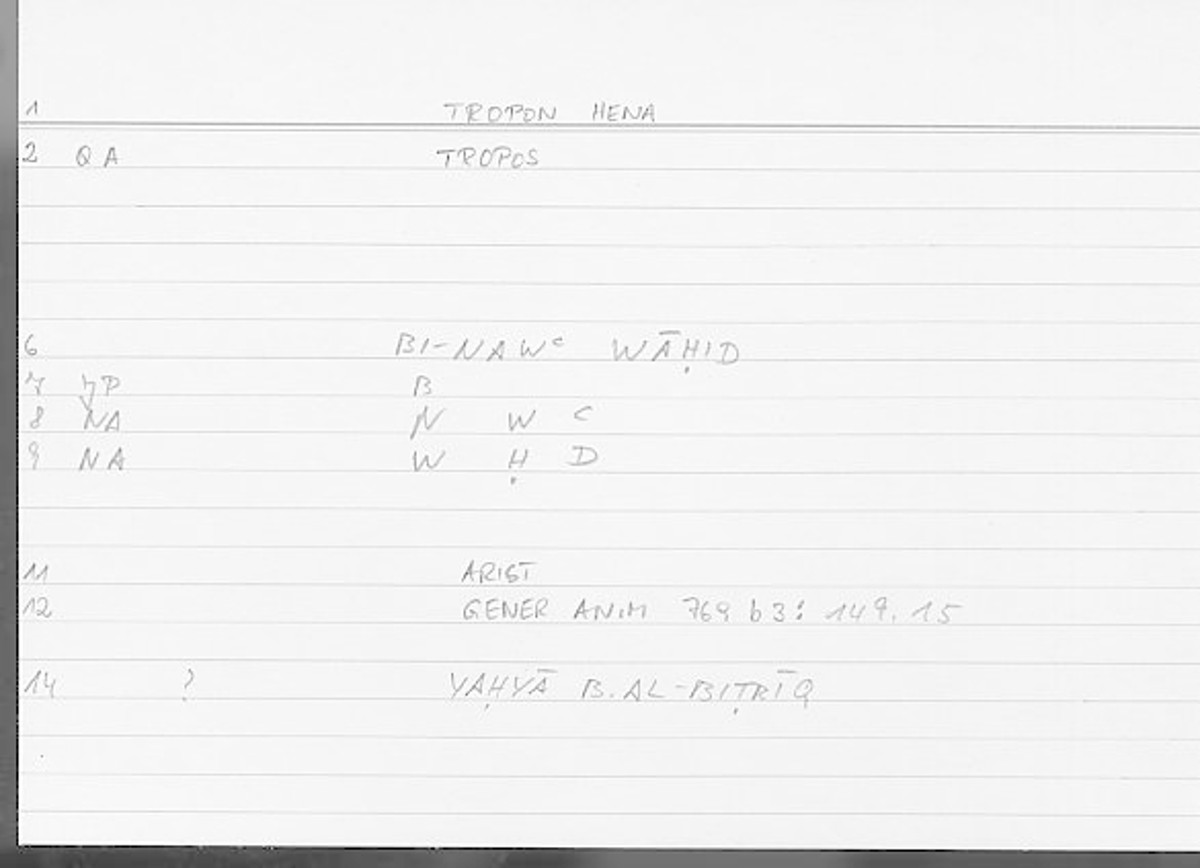 1 TROPON HENA
2 QA TROPOS
6 BI-NAWᶜ WĀḤID
7 P B
8 NA N W ᶜ
9 NA W Ḥ D
11 ARIST
12 GENER ANIM 769 b 3: 149.15
14 ? YAḤYĀ B. AL-BIṬRĪQ